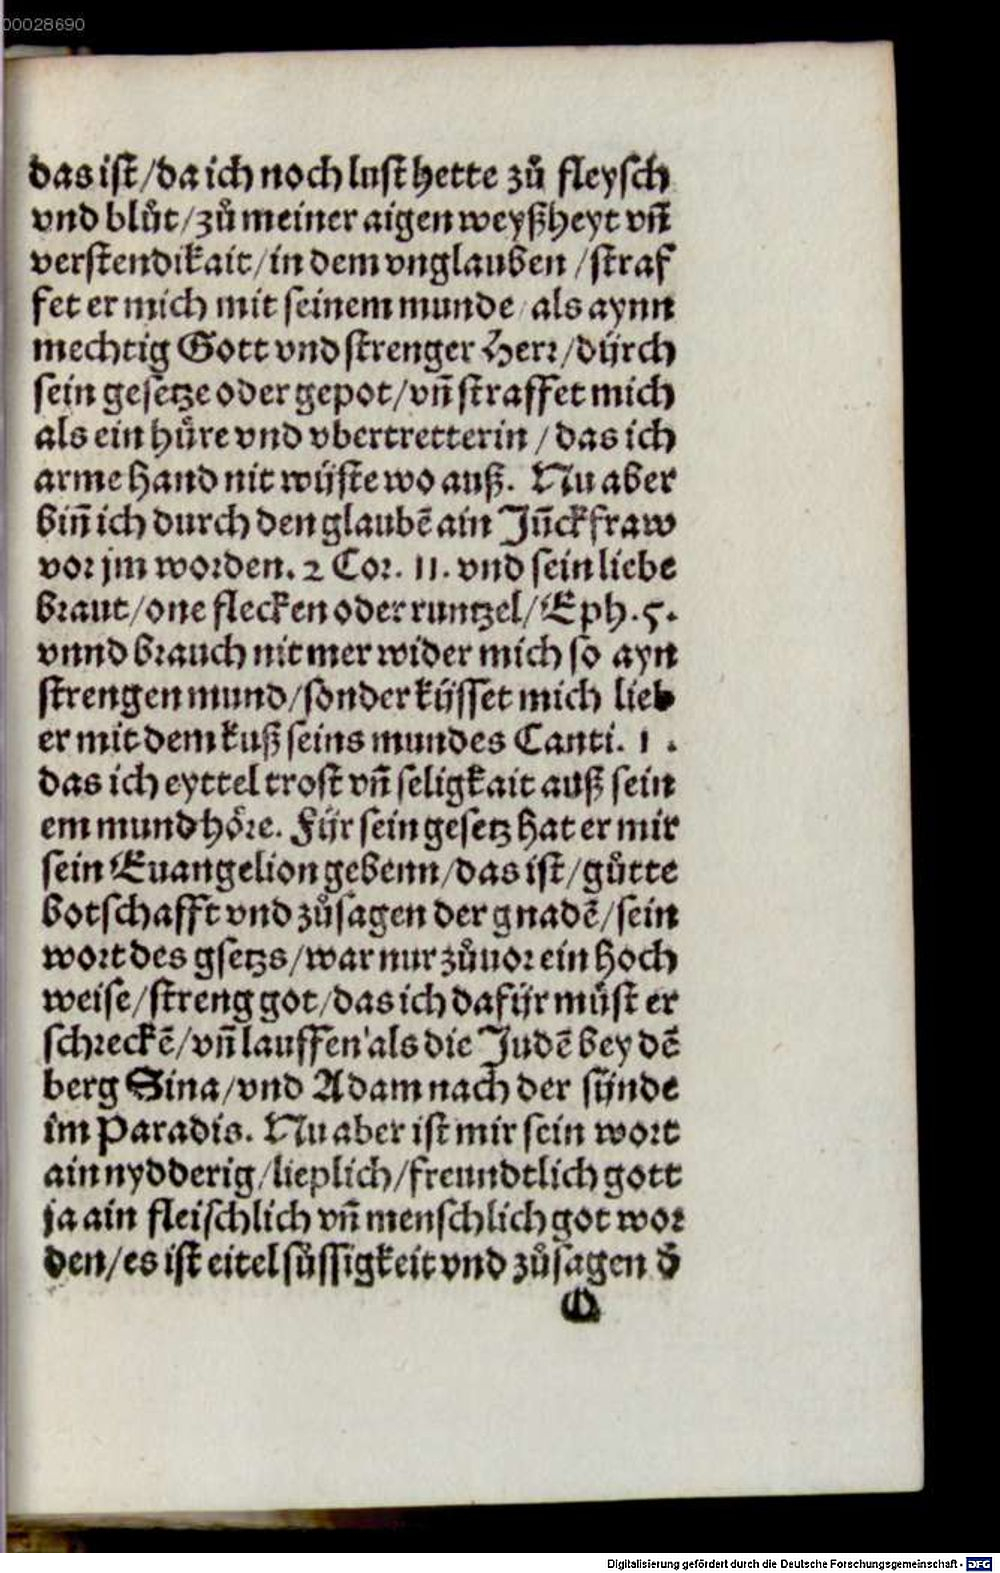 00028690
das ist/da ich noch lust hette zuͦ fleysch
vnd bluͦt/zuͦ meiner aigen weyßheyt vñ
verstendikait/in dem vnglauben/straf
fet er mich mit seinem munde/als aynn
mechtig Gott vnd strenger Herr/dürch
sein gesetze oder gepot/vñ straffet mich
als ein huͦre vnd vbertretterin/das ich
arme hand nit wüste wo auß. Nu aber
biñ ich durch den glaubē ain Jüñckfraw
vor jm worden. 2 Cor. 11. vnd sein liebe
braut/one flecken oder runtzel/Eph. 5.
vnnd brauch nit mer wider mich so ayn
strengen mund/sonder küsset mich lieb
er mit dem kuß seins mundes Canti. 1.
das ich eyttel trost vñ seligkait auß sein
em mund hoͤre. Für sein gesetz hat er mir
sein Euangelion gebenn/das ist/guͦtte
botschafft vnd zuͦsagen der gnadē/sein
wort des gsetzs/war nur zuͦuor ein hoch
weise/streng got/das ich dafür muͦst er
schreckē/vñ lauffen als die Judē bey dē
berg Sina/vnd Adam nach der sünde
im Paradis. Nu aber ist mir sein wort
ain nydderig/lieplich/freundtlich gott
ja ain fleischlich vñ menschlich got wor
den/es ist eitel süssigkeit vnd zuͦsagen d̄
Digitalisierung gefördert durch die Deutsche Forschungsgemeinschaft - DFG